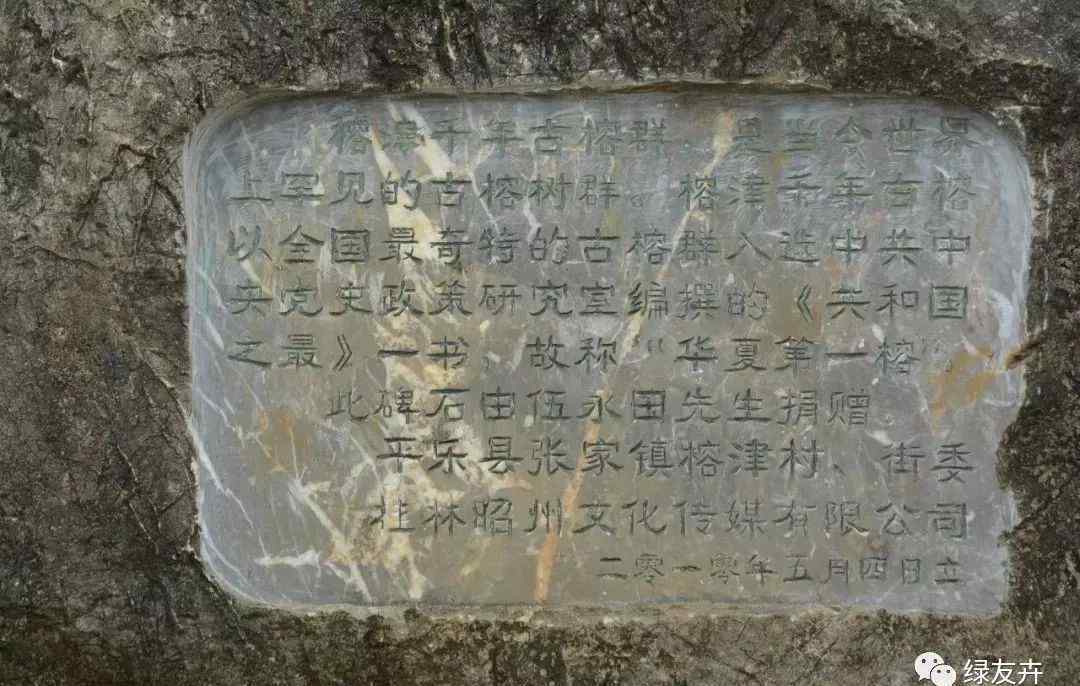 榕津千年古榕群,是当今世界
上罕见的古榕树群。榕津千年古榕
以全国最奇特的古榕群入选中共中
央党史政策研究室编撰的《共和国
之最》一书,故称“华夏第一榕”。
此碑石由伍永田先生捐赠。
平乐县张家镇榕津村、街委
桂林昭州文化传媒有限公司
二零一零年五月四日立
绿友卉